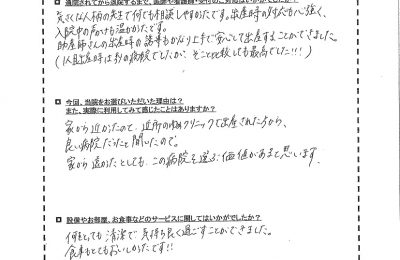 通院されてから退院するまで、医師や看護師・受付のご対応はいかがでしたか？
気さくな人柄の先生で何でも相談しやすかったです。出産時の対応も心強く、
入院中の声かけも温かかったです。
助産師さんの出産時の誘導もかなり上手で安心して出産することができました。
(1人目出産時は別の病院でしたが、そこと比較しても最高でした!!!)
今回、当院をお選びいただいた理由は？
また、実際に利用してみて感じたことはありますか？
家から近かったので、近所の クリニックで出産された方から、
良い病院だったと聞いたので。
家から遠かったとしても、この病院を選ぶ価値があると思います。
設備やお部屋、お食事などのサービスに関してはいかがでしたか？
何をとっても清潔で気持ち良く過ごすことができました。
食事もとてもおいしかったです!!